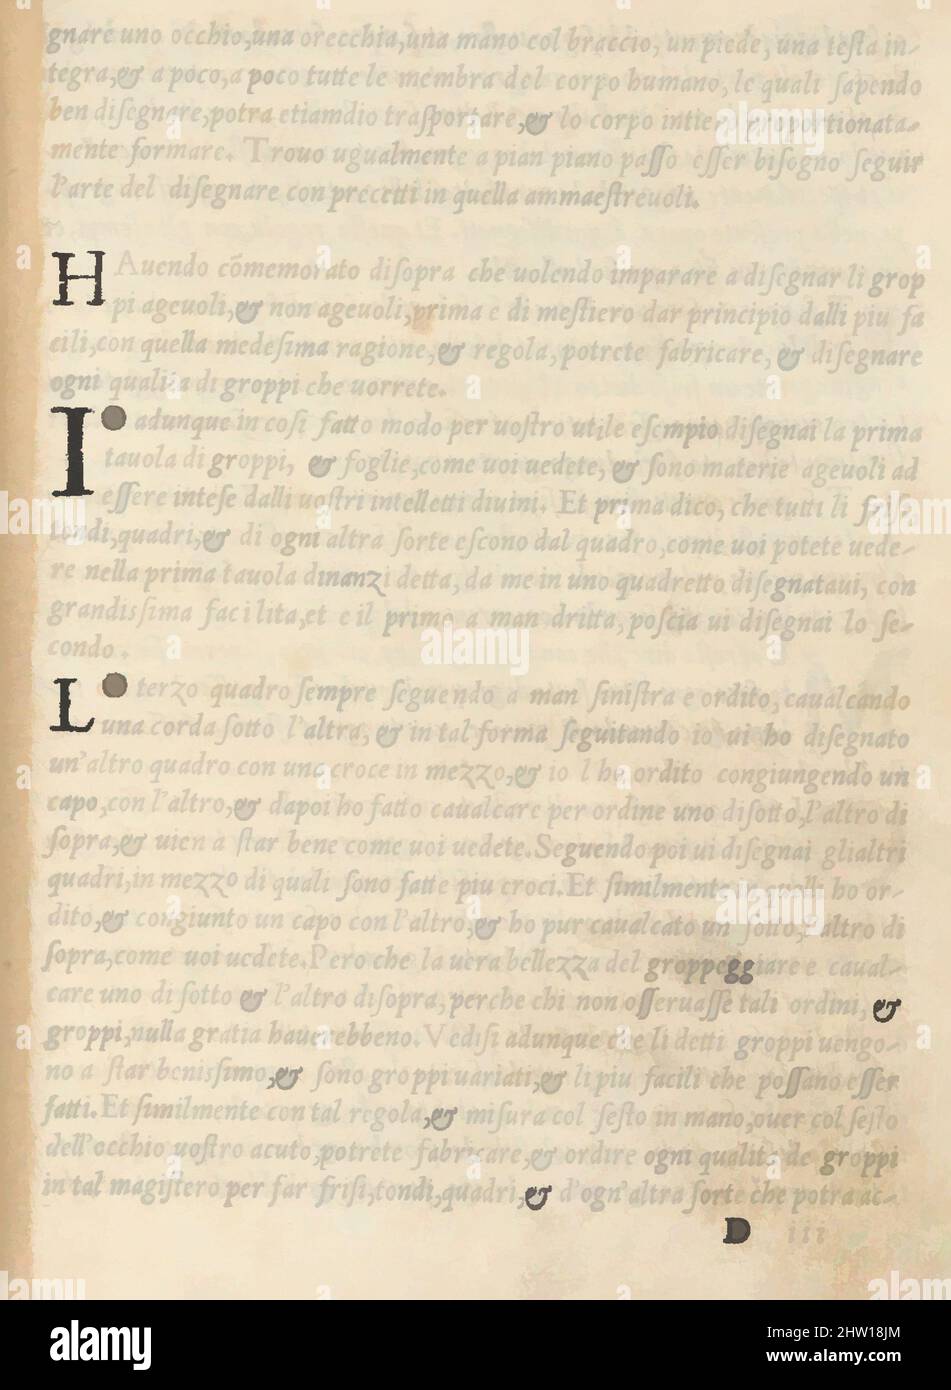 gnare uno occhio,una orecchia,una mano col braccio, un piede, una teſta in-
tegra,& a poco,a poco tutte le membra del corpo humano, le quali ſapendo
ben diſegnare,potra etiamdio traſportare,& lo corpo proportionata-
mente formare. Trouo ugualmente a pian piano paſſo eſſer biſogno ſeguir
l'arte del diſegnare con precetti in quella ammaeſtreuoli.
HAuendo cōmemorato diſopra che uolendo imparare a diſegnar li grop
pi ageuoli,& non ageuoli,prima e di meſtiero dar principio dalli piu fa
cili,con quella medeſima ragione,& regola, potrete fabricare, & diſegnare
ogni qualita di groppi che uorrete.
Io adunque in coſi fatto modo per uoſtro utile eſempio diſegnai la prima
tauola di groppi, & foglie,come uoi uedete, & ſono materie ageuoli ad
eſſere inteſe dalli uoſtri intelletti diuini. Et prima dico, che tutti li friſi
tondi,quadri,& di ogni altra ſorte eſcono dal quadro,come uoi potete uede-
re nella prima tauola dinanzi detta, da me in uno quadretto diſegnataui, con
grandiſsima facilita,et e il primo a man dritta, poſcia ui diſegnai lo ſe-
condo.
Lo terzo quadro ſempre ſeguendo a man ſiniſtra e ordito, caualcando
una corda ſotto l'altra, & in tal forma ſeguitando io ui ho diſegnato
un'altro quadro con una croce in mezzo,& io l ho ordito congiungendo un
capo,con l'altro,& dapoi ho fatto caualcare per ordine uno diſotto,l'altro di
ſopra,& uien a ſtar bene come uoi uedete. Seguendo poi ui diſegnai gli altri
quadri,in mezzo di quali ſono fatte piu croci. Et ſimilmente quelli ho or-
dito,& congiunto un capo con l'altro,& ho pur caualcato un ſotto,l'altro di
ſopra,come uoi uedete. Pero che la uera bellezza del groppeggiare e caual-
care uno di ſotto & l'altro diſopra, perche chi non oſſeruaſſe tali ordini, &
groppi,nulla gratia hauerebbeno. Vediſi adunque che li detti groppi uengo-
no a ſtar beniſsimo,& ſono groppi uariati,& li piu facili che poſſano eſſer
fatti. Et ſimilmente con tal regola,& miſura col ſeſto in mano,ouer col ſeſto
dell'occhio uoſtro acuto,potrete fabricare,& ordire ogni qualita de groppi
in tal magiſtero per far friſi,tondi,quadri,& d'ogn'altra ſorte che potra ac-
D iii
alamy
alamy
Image ID: 2HW18JM
www.alamy.com